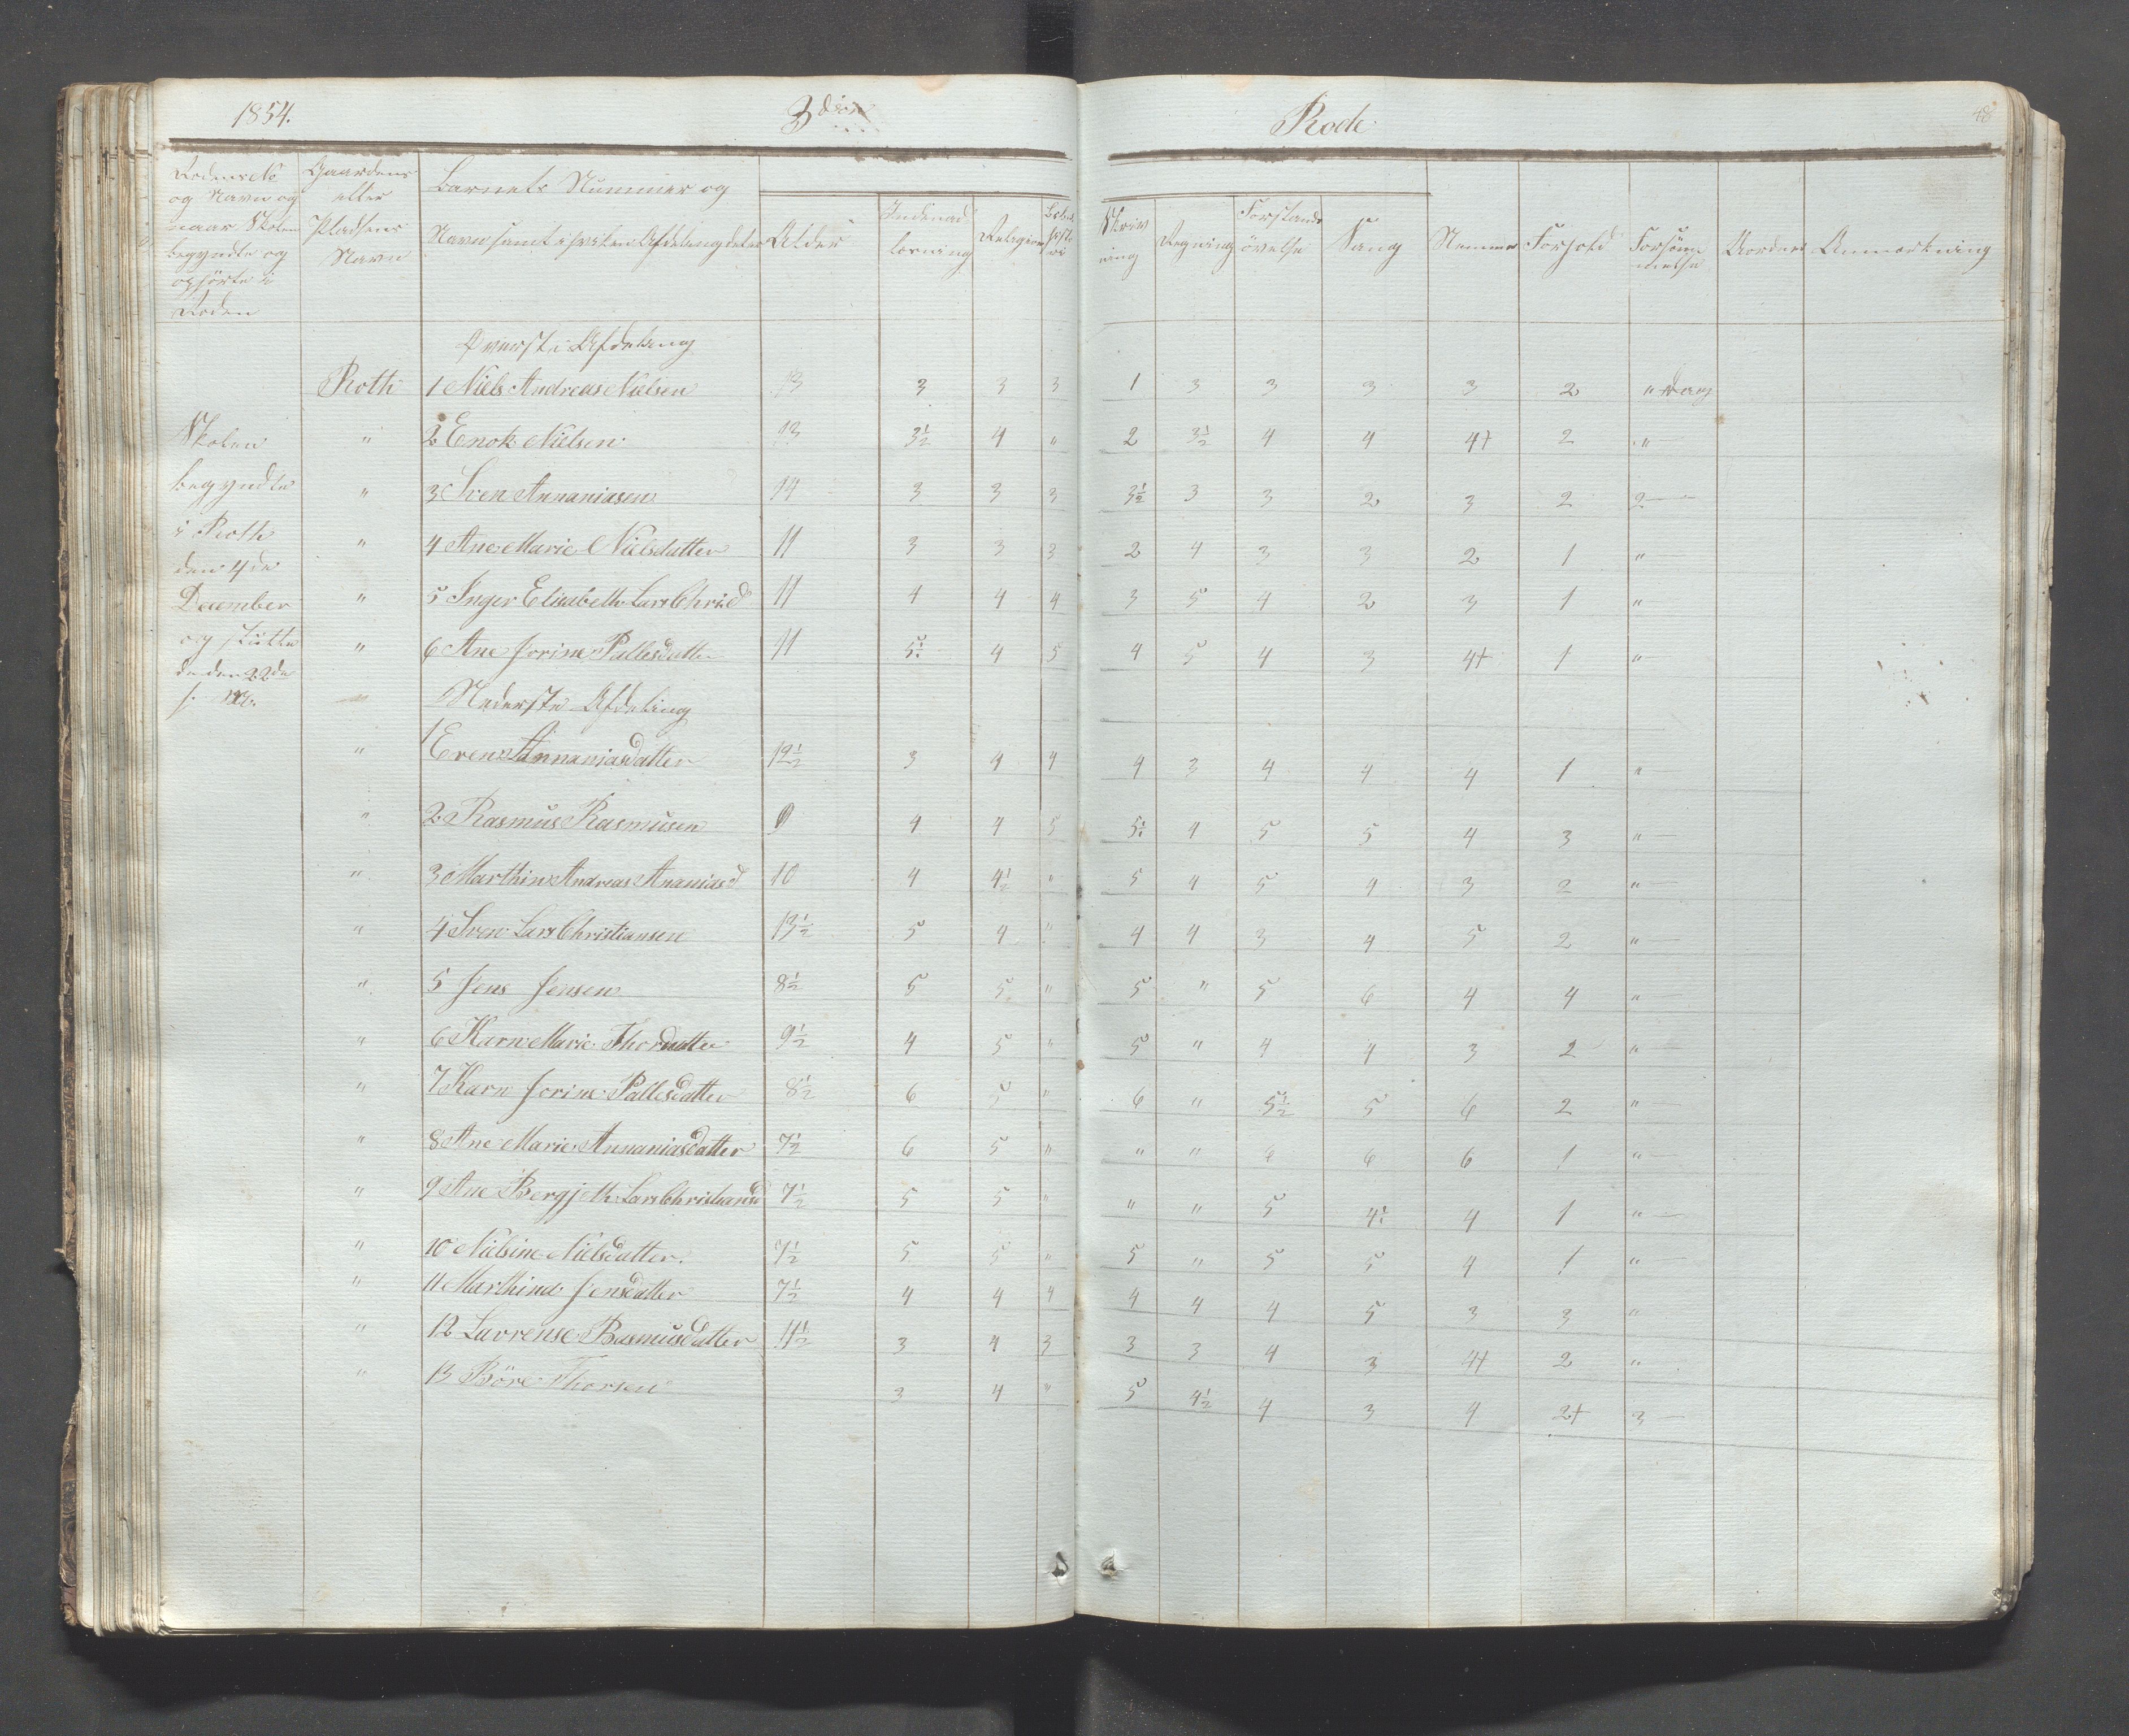 1854.
3die
Rode
48
Rodens No
og Navn og
naar Skolen
begyndte og
ophörte i
Roden
Gaardens
eller
Pladsens
Navn
Barnets Nummer og
Navn samt i hvilken Afdeling det er
Alder
Indenad
læsning
Religion
Skriv
ning
Regning
Forstands
övelse
Sang
Nemme
Forhold
Forsöm
melse
Uorden
Anmærkning
Överste Afdeling
Roth 1 Niels Andreas Nielsen 13 3 3 3 1 3 3 3 3 2 " Dag
Skolen
" 2 Enok Nielsen 13 3½ 4 " 2 3½ 4 4 4+ 2 " —
begyndte
" 3 Sven Annaniasen 14 3 3 3 3½ 3 3 2 3 2 2 —
i Roth
" 4 Ane Marie Nielsdatter 11 3 3 3 2 4 3 3 2 1 " —
den 4de
December
" 5 Inger Elisabeth Lars Chri.d 11 4 4 4 3 5 4 2 3 1 " —
og sluttede
den 22de
" 6 Ane Jorine Pallesdatter 11 5: 4 5 4 5 4 3 4+ 1 " —
Nederste Afdeling
" 1 Eren Annaniasdatter 12½ 3 4 4 4 3 4 4 4 1 " —
" 2 Rasmus Rasmusen 9 4 4 5 5: 4 5 5 4 3 " —
" 3 Marthin Andreas Ananias d 10 4 4½ " 5 4 5 4 3 2 " —
" 4 Sven Lars Christiansen 13½ 5 4 " 4 4 3 4 5 2 " —
" 5 Jens Jensen 8½ 5 5 " 5 " 5 6 4 4 " —
" 6 Karn Marie Thordatter 9½ 4 5 " 5 " 4 4 3 2 " —
" 7 Karn Jorine Pallesdatter 8½ 6 5 " 6 " 5½ 5 6 2 " —
" 8 Ane Marie Annaniasdatter 7½ 6 5 " " " 6 6 6 1 " —
" 9 Ane Bergjeth Lars Christiansd 7½ 5 5 " " " 5 4: 4 1 " —
" 10 Nielsine Nielsdatter. 7½ 5 5 " 5 " 5 5 4 1 " —
" 11 Marthina Jensdatter 7½ 4 4 4 4 4 4 5 3 3 "
" 12 Lavrense Rasmusdatter 11½ 3 4 3 3 3 4 3 4+ 2 "
" 13 Böre Thorsen 3 4 " 5 4½ 4 3 4 2+ 3 —